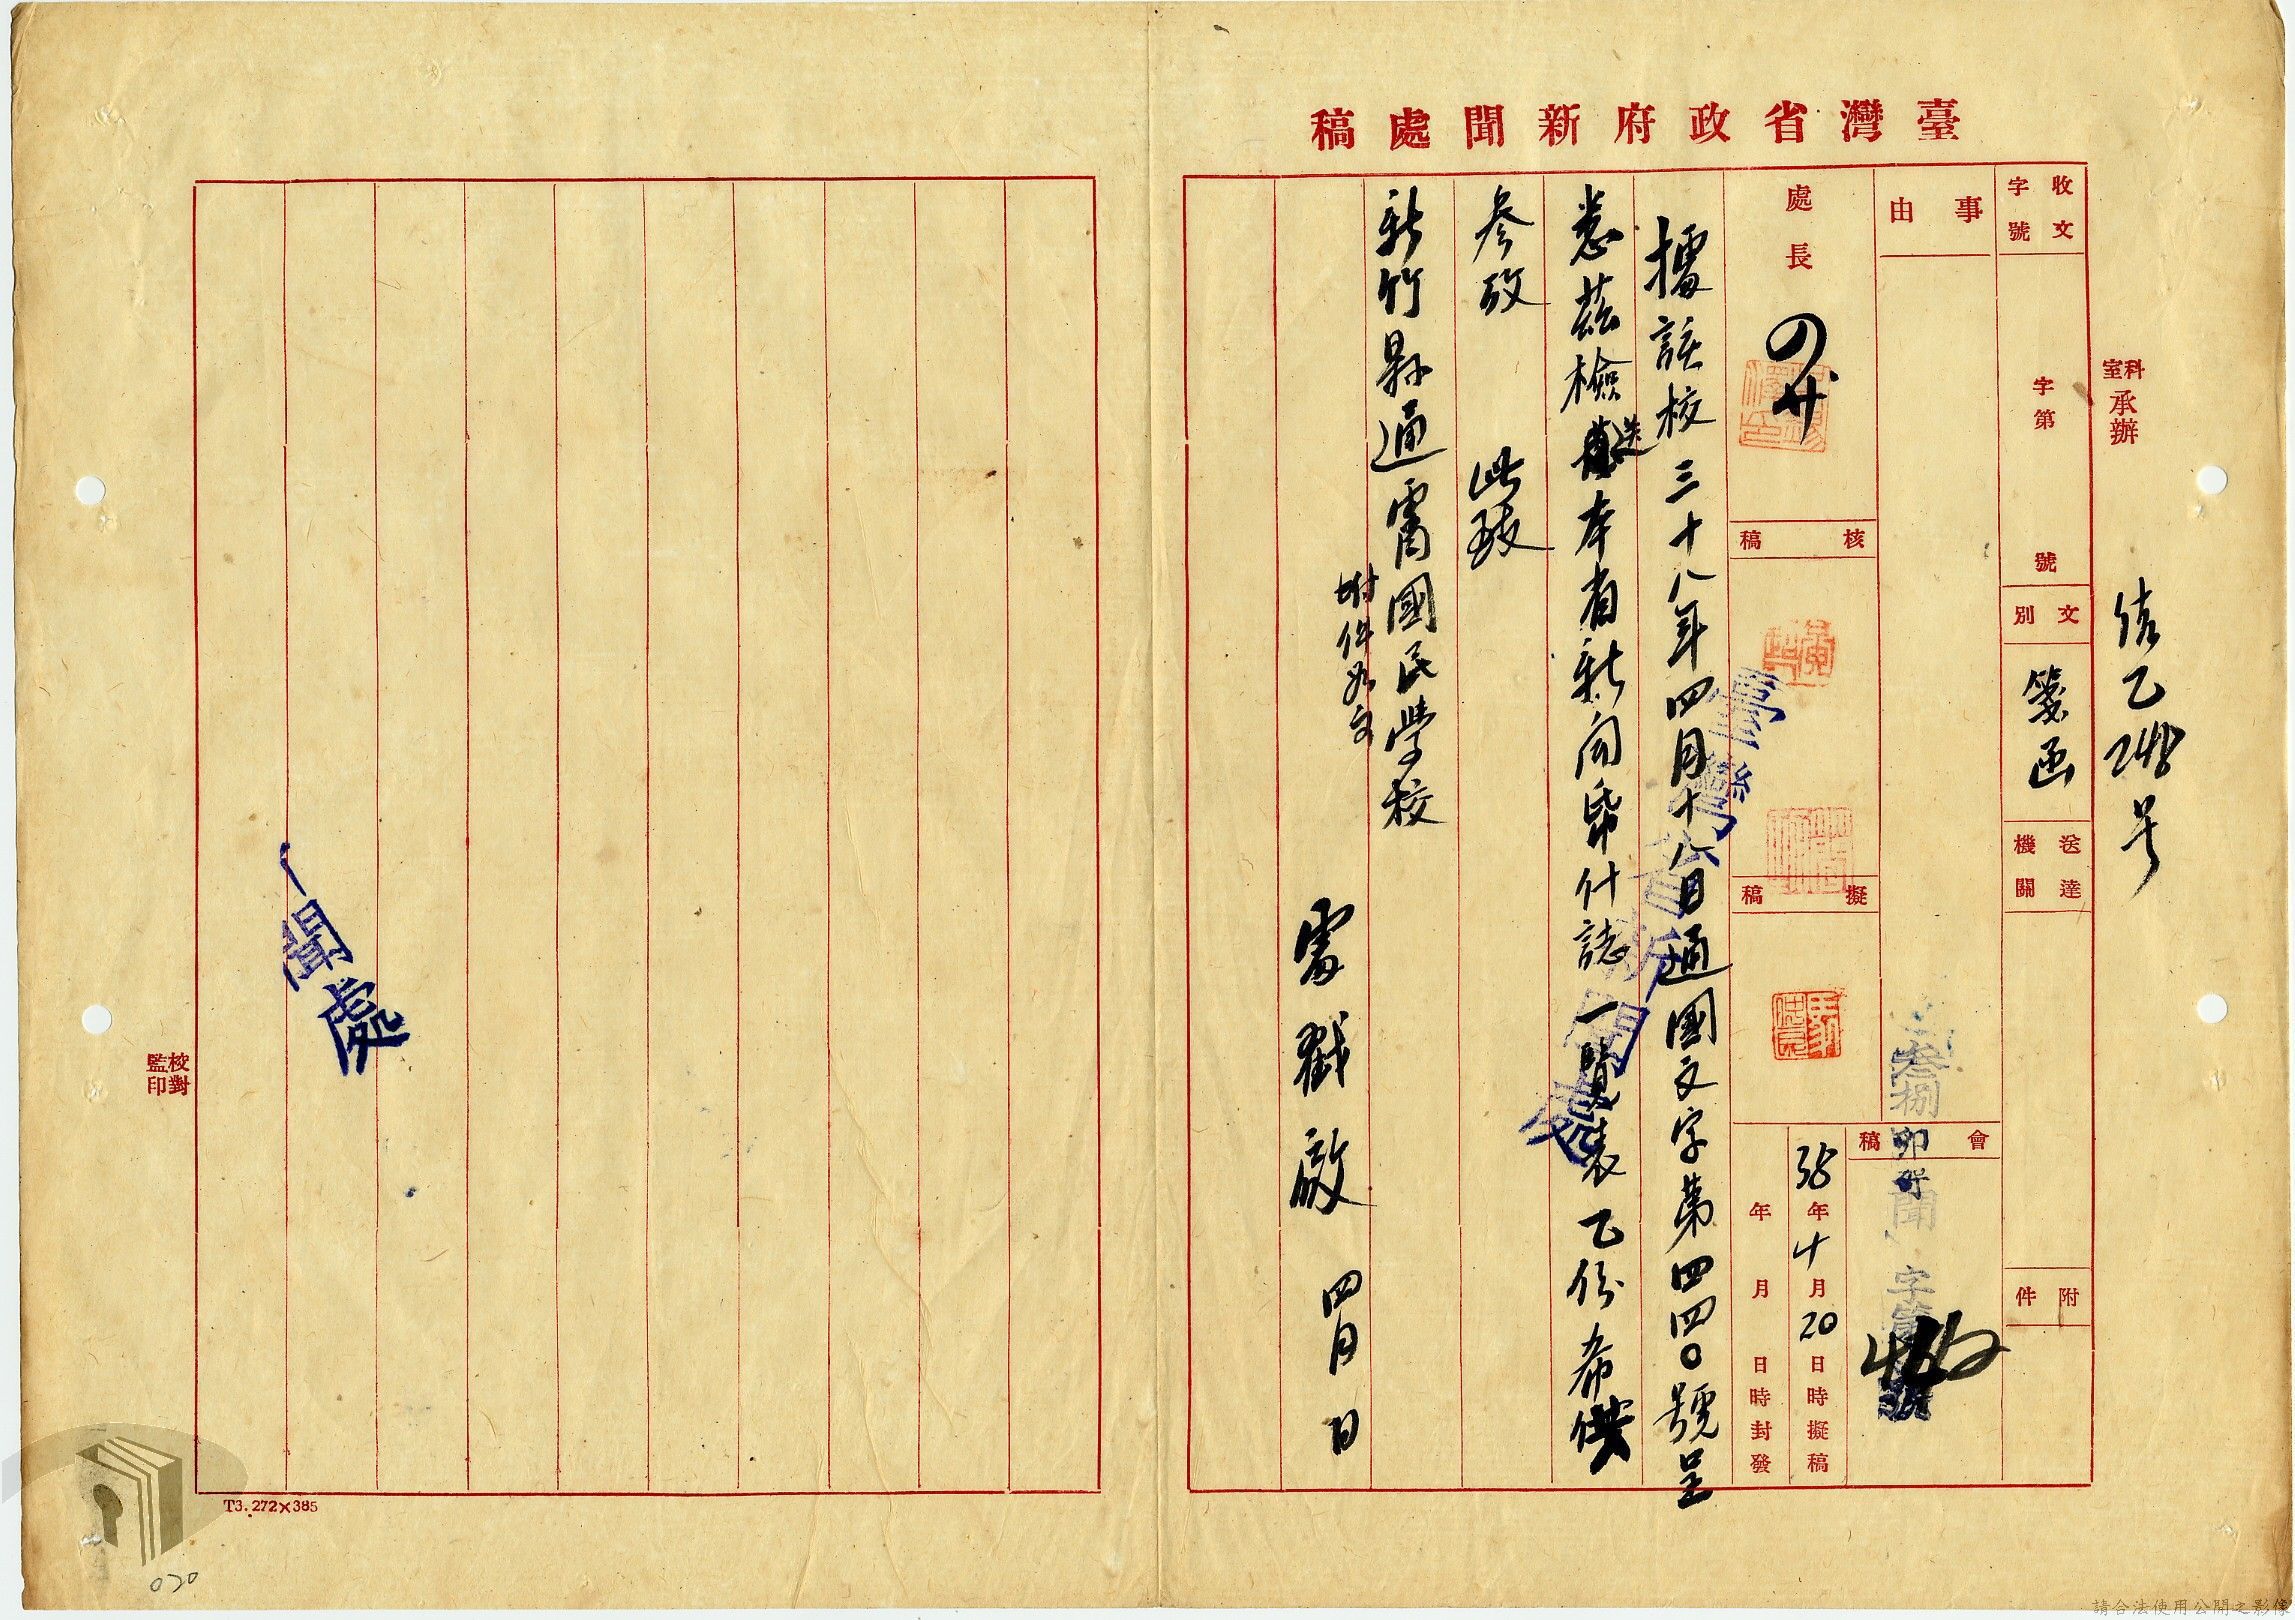 臺灣省政府新聞處稿
科室承辦
乙248号
收文字號
字第 號
文別
箋函
送達機關
附件
事由
會稿
叁捌 卯 聞 字第 號
處長
核稿
擬稿
38年 月20日 時擬稿
年 月 日 時封發
據該校三十八年四月十八日通國文字第四四〇號呈
悉茲檢送本省新闻帋什誌一覽表乙份希供
參攷 此致
新竹縣通霄國民學校
附件如文
處戳啟 四月 日
臺灣省新聞處
聞處
校對
監印
T3.272×385
020
請合法使用公開之影像